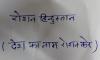 रोशन हिन्दुस्तान
(देश का नाम रोशन करे)